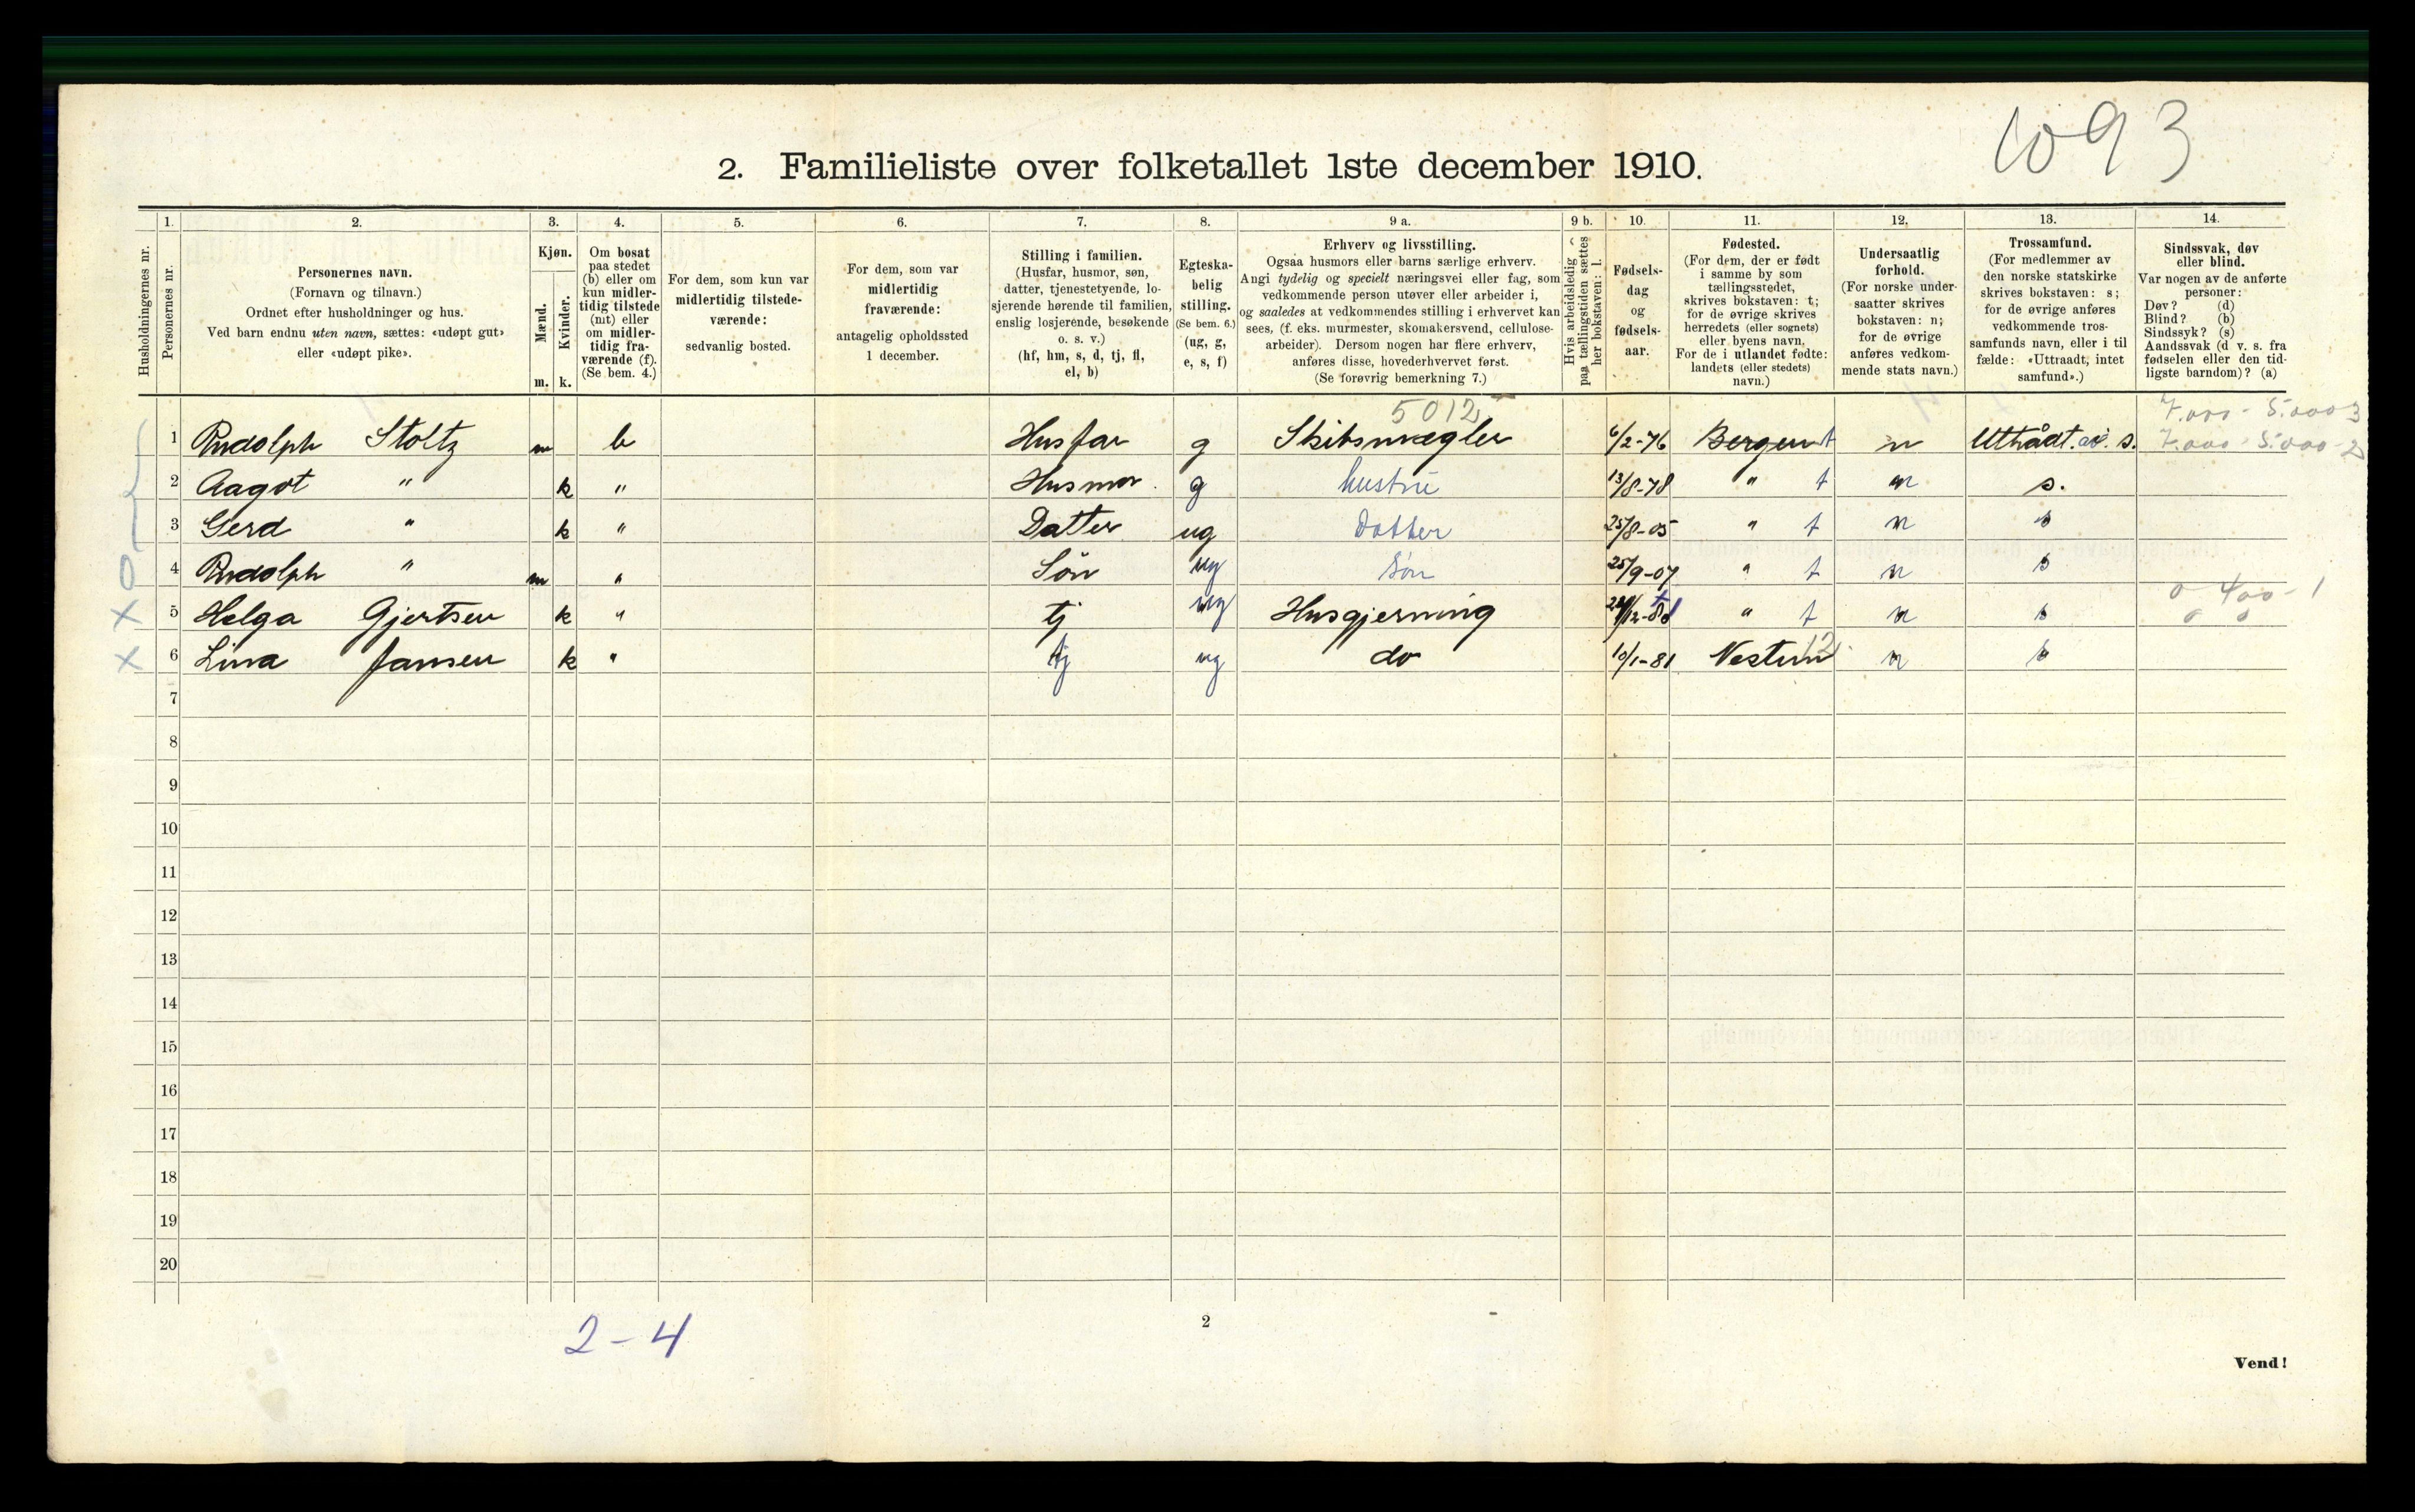 1093
2. Familieliste over folketallet 1ste december 1910.
Husholdningernes nr.
1. Personernes nr.
2. Personernes navn. (Fornavn og tilnavn.) Ordnet efter husholdninger og hus. Ved barn endnu uten navn, sættes: «udøpt gut» eller «udøpt pike».
3. Kjøn. Mænd. m. Kvinder. k.
4. Om bosat paa stedet (b) eller om kun midlertidig tilstede (mt) eller om midlertidig fraværende (f). (Se bem. 4.)
5. For dem, som kun var midlertidig tilstedeværende: sedvanlig bosted.
6. For dem, som var midlertidig fraværende: antagelig opholdssted 1 december.
7. Stilling i familien. (Husfar, husmor, søn, datter, tjenestetyende, losjerende hørende til familien, enslig losjerende, besøkende o. s. v.) (hf, hm, s, d, tj, fl, el, b)
8. Egteskabelig stilling. (Se bem. 6.) (ug, g, e, s, f)
9 a. Erhverv og livsstilling. Ogsaa husmors eller barns særlige erhverv. Angi tydelig og specielt næringsvei eller fag, som vedkommende person utøver eller arbeider i, og saaledes at vedkommendes stilling i erhvervet kan sees, (f. eks. murmester, skomakersvend, cellulosearbeider). Dersom nogen har flere erhverv, anføres disse, hovederhvervet først. (Se forøvrig bemerkning 7.)
9 b. Hvis arbeidsledig paa tællingstiden sættes her bokstaven: l.
10. Fødselsdag og fødselsaar.
11. Fødested. (For dem, der er født i samme by som tællingsstedet, skrives bokstaven: t; for de øvrige skrives herredets (eller sognets) eller byens navn. For de i utlandet fødte: landets (eller stedets) navn.)
12. Undersaatlig forhold. (For norske undersaatter skrives bokstaven: n; for de øvrige anføres vedkommende stats navn.)
13. Trossamfund. (For medlemmer av den norske statskirke skrives bokstaven: s; for de øvrige anføres vedkommende trossamfunds navn, eller i tilfælde: «Uttraadt, intet samfund».)
14. Sindssvak, døv eller blind. Var nogen av de anførte personer: Døv? (d) Blind? (b) Sindssyk? (s) Aandssvak (d v. s. fra fødselen eller den tidligste barndom)? (a)
5012
7.000 - 5.000 3
1 Rudolph Stoltz m b Husfar g Skibsmægler 6/2-76 Bergen t n Uttrådt av s. 7.000 - 5.000 - 2
2 Aagot " k " Husmor g hustru 13/8-78 " t n s.
3 Gerd " k " Datter ug Datter 25/8-05 " t n s
4 Rudolph " m " Søn ug Søn 25/9-07 " t n s
5 Helga Gjertsen k " tj ug Husgjerning " t n s 0 400 - 1
0 0
6 Lina Jansen k " tj ug do 10/1-81 Nestun 12 n s
7
8
9
10
11
12
13
14
15
16
17
18
19
20
2-4
2
Vend!